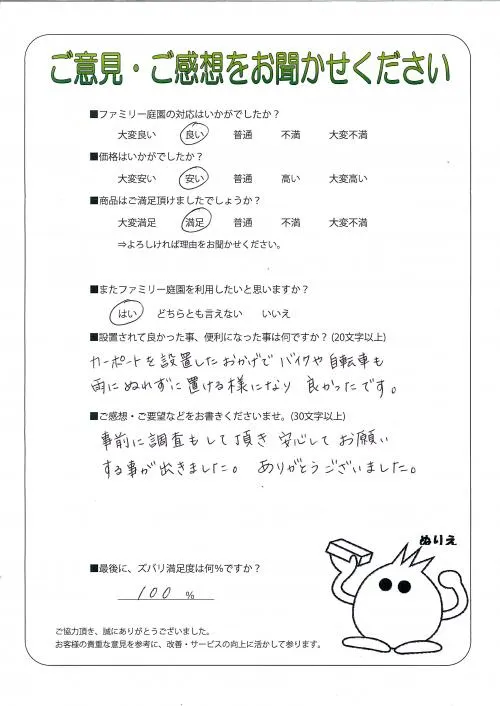 ご意見・ご感想をお聞かせください
■ファミリー庭園の対応はいかがでしたか？
大変良い 良い 普通 不満 大変不満
■価格はいかがでしたか？
大変安い 安い 普通 高い 大変高い
■商品はご満足頂けましたでしょうか？
大変満足 満足 普通 不満 大変不満
⇒よろしければ理由をお聞かせください。
■またファミリー庭園を利用したいと思いますか？
はい どちらとも言えない いいえ
■設置されて良かった事、便利になった事は何ですか？(20文字以上)
カーポートを設置したおかげで バイクや自転車も
雨にぬれずに置ける様になり 良かったです。
■ご感想・ご要望などをお書きくださいませ。(30文字以上)
事前に調査もして頂き 安心して お願い
する事が出きました。 ありがとうございました。
ぬりえ
■最後に、ズバリ満足度は何%ですか？
100 %
ご協力頂き、誠にありがとうございました。
お客様の貴重な意見を参考に、改善・サービスの向上に活かして参ります。